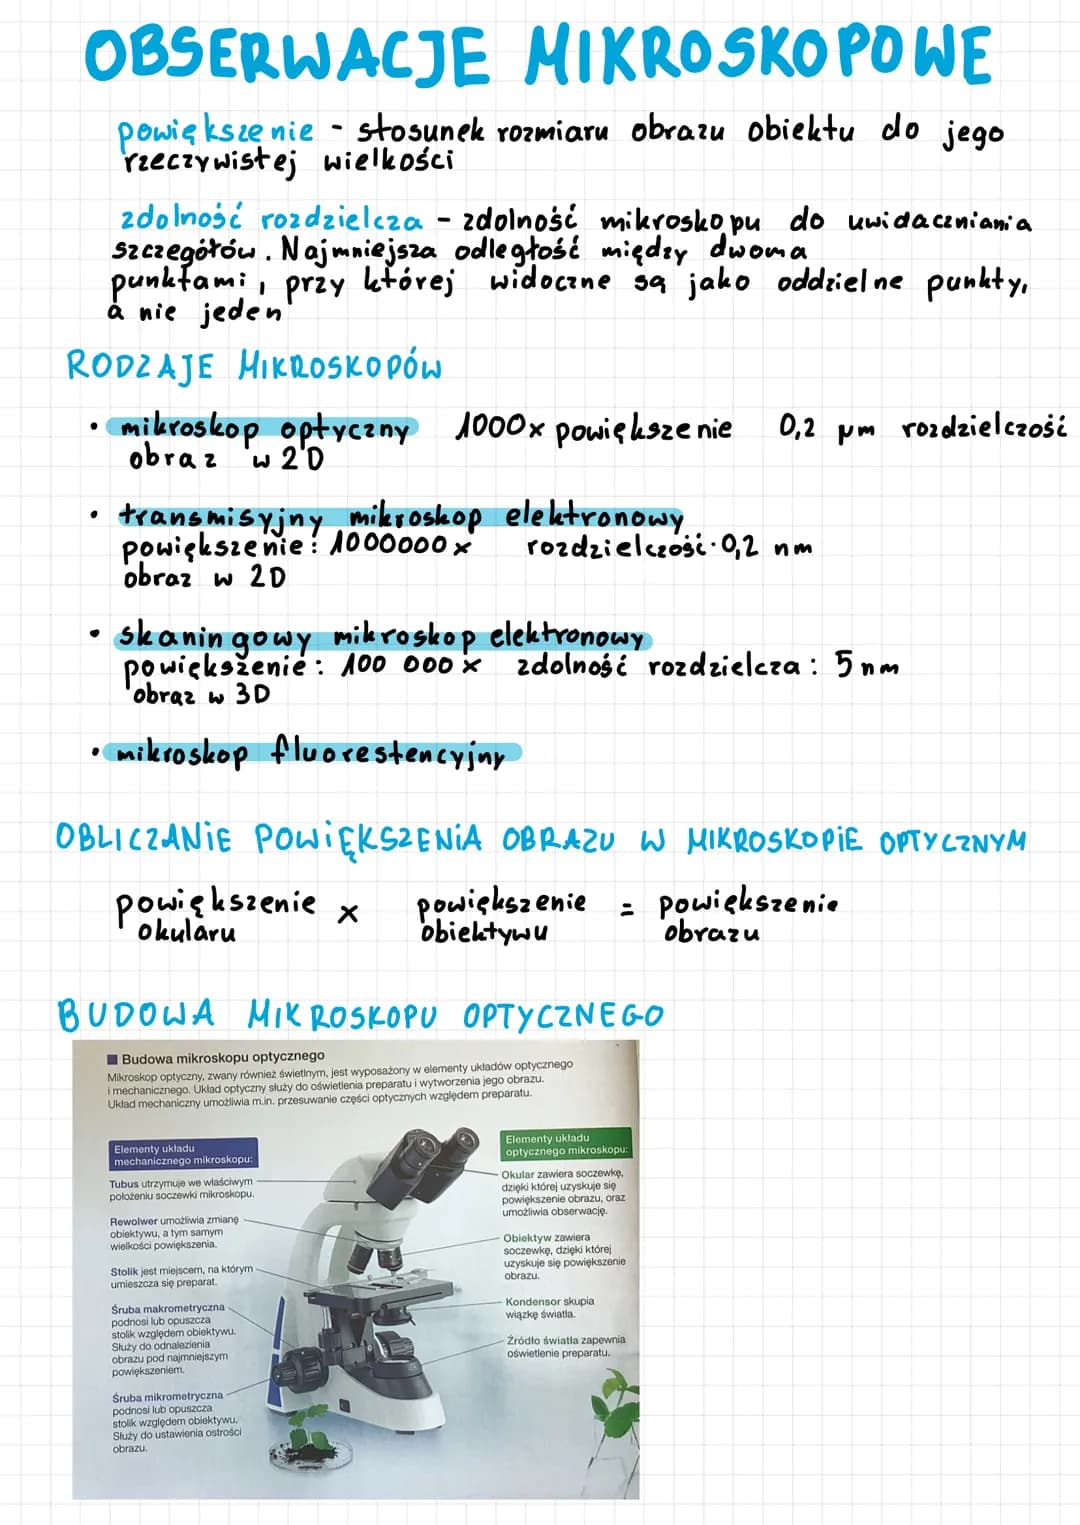 OBSERWACJE MIKROSKOPOWE
powiększenie - stosunek rozmiaru obrazu obiektu do jego
rzeczywistej wielkości
zdolność rozdzielcza - zdolność mikroskopu do uwidaczniania
szczegółów. Najmniejsza odległość między dwoma
punktami, przy której widoczne są jako oddzielne punkty,
a nie jeden
RODZAJE MIKROSKOPÓW
• mikroskop optyczny 1000x powiększenie 0,2 μm rozdzielczość
obraz w 2D
• transmisyjny mikroskop elektronowy
powiększenie: 1000000x rozdzielczość·0,2 nm
obraz w 2D
• skaningowy mikroskop elektronowy
powiększenie: 100 000x zdolność rozdzielcza: 5nm
obraz w 3D
• mikroskop fluorestencyjny
OBLICZANIE POWIĘKSZENIA OBRAZU W MIKROSKOPIE OPTYCZNYM
powiększenie x powiększenie = powiększenie
okularu obiektywu obrazu
BUDOWA MIKROSKOPU OPTYCZNEGO
Budowa mikroskopu optycznego
Mikroskop optyczny, zwany również świetlnym, jest wyposażony w elementy układów optycznego
i mechanicznego. Układ optyczny służy do oświetlenia preparatu i wytworzenia jego obrazu.
Układ mechaniczny umożliwia m.in. przesuwanie części optycznych względem preparatu.
Elementy układu
mechanicznego mikroskopu:
Tubus utrzymuje we właściwym
położeniu soczewki mikroskopu.
Rewolwer umożliwia zmianę
obiektywu, a tym samym
wielkości powiększenia.
Stolik jest miejscem, na którym
umieszcza się preparat.
Śruba makrometryczna
podnosi lub opuszcza
stolik względem obiektywu.
Służy do odnalezienia
obrazu pod najmniejszym
powiększeniem.
Śruba mikrometryczna
podnosi lub opuszcza
stolik względem obiektywu.
Służy do ustawienia ostrości
obrazu.
Elementy układu
optycznego mikroskopu:
Okular zawiera soczewkę,
dzięki której uzyskuje się
powiększenie obrazu, oraz
umożliwia obserwację.
Obiektyw zawiera
soczewkę, dzięki której
uzyskuje się powiększenie
obrazu.
Kondensor skupia
wiązkę światła.
Źródło światła zapewnia
oświetlenie preparatu.